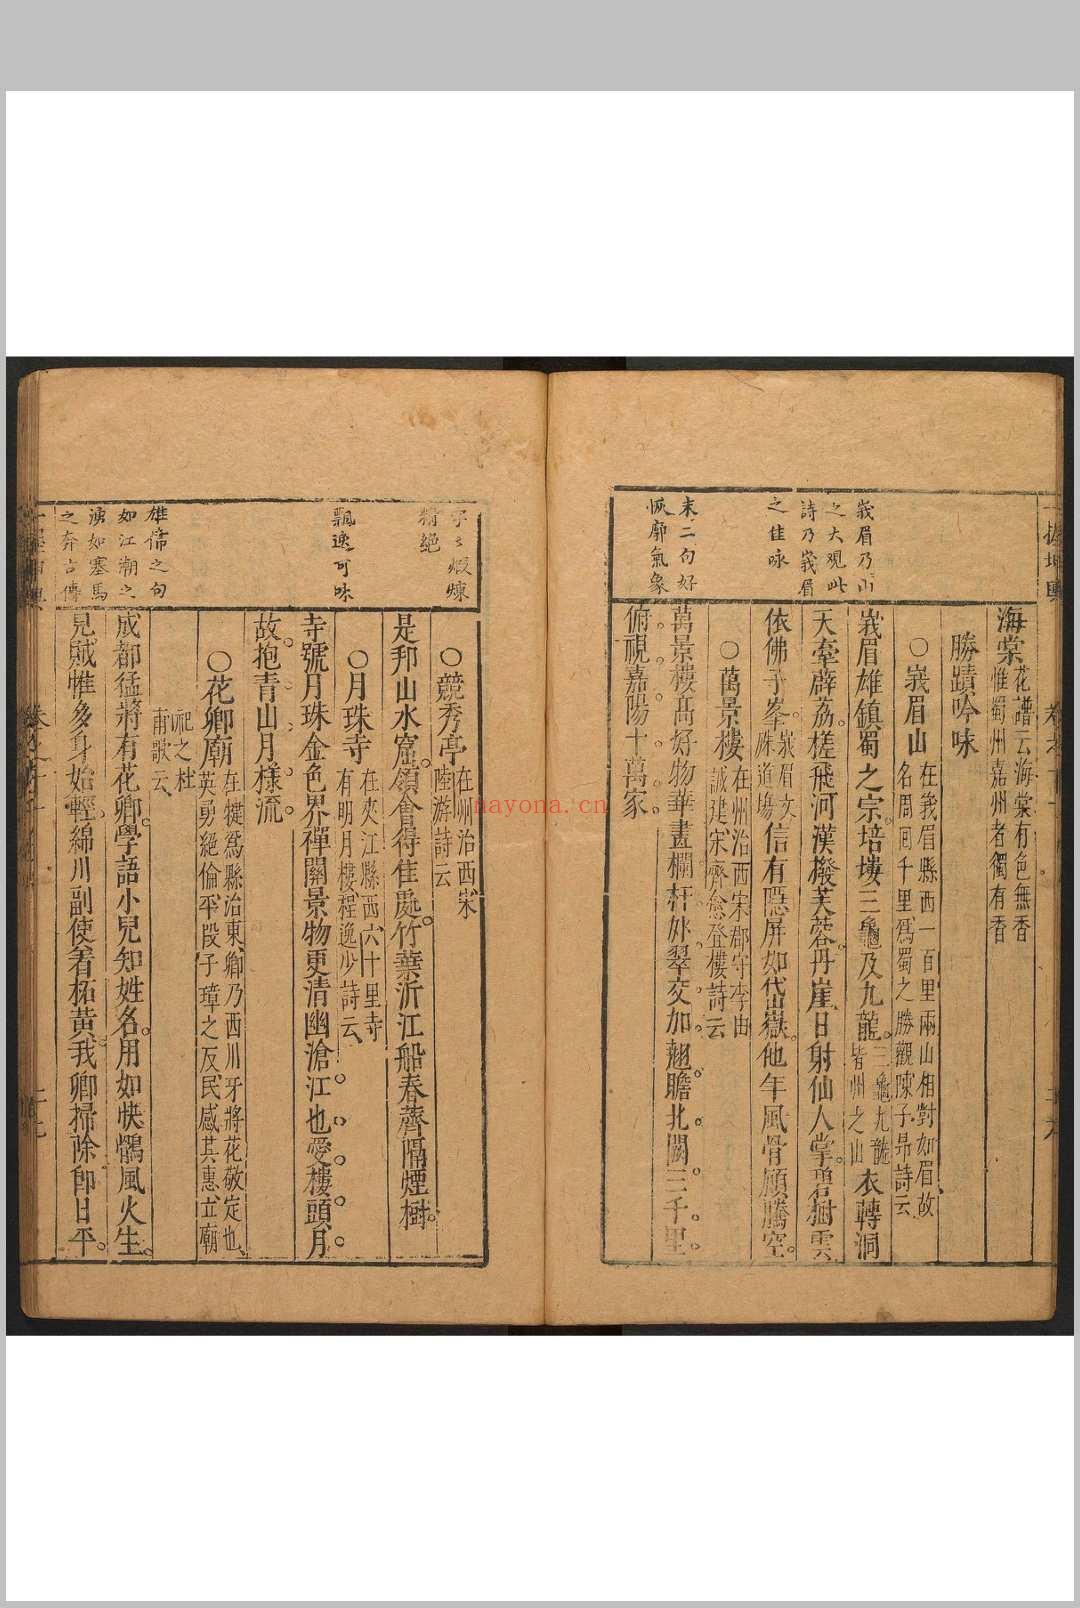 峩眉乃山
之大觀此
詩乃峩眉
之佳咏
末二句好
恢廓氣象
海棠花譜云海棠有色無香
惟蜀州嘉州者獨有香
勝蹟吟味
○峩眉山在峩眉縣西一百里兩山相對如眉故
名周囘千里爲蜀之勝觀陳子昻詩云
峩眉雄鎮蜀之宗培塿三龜及九龍三龜九龍
皆州之山衣轉洞
天牽薜荔槎飛河漢撥芙蓉丹崖日射仙人掌碧樹雲
依佛子峯峩眉文
殊道塲信有隱屏如代嶽他年風骨願騰空
○萬景樓在州治西宋郡守李由
誠建宋齊愈登樓詩云
萬景樓高好物華畫欄杆外翠交加翹瞻北闕三千里
俯視嘉陽十萬家
字〻煅煉
精絕
飄逸可味
雄偉之句
如江潮之
湧如塞馬
之奔古傳
○競秀亭在州治西宋
陸游詩云
是邦山水窟領會得佳處竹葉沂江船春薺隔煙樹
○月珠寺在夾江縣西六十里寺
有明月樓程逸少詩云
寺號月珠金色界禪關景物更清幽滄江也愛樓頭月
故抱青山月様流
○花卿廟在犍爲縣治東卿乃西川牙將花敬定也
英勇絕倫平段子璋之反民感其惠立廟
祀之杜
甫歌云
成都猛將有花卿學語小兒知姓名用如快鶻風火生
見賊惟多身始輕綿州副使着柘黃我卿掃除即日平
nayona.cn